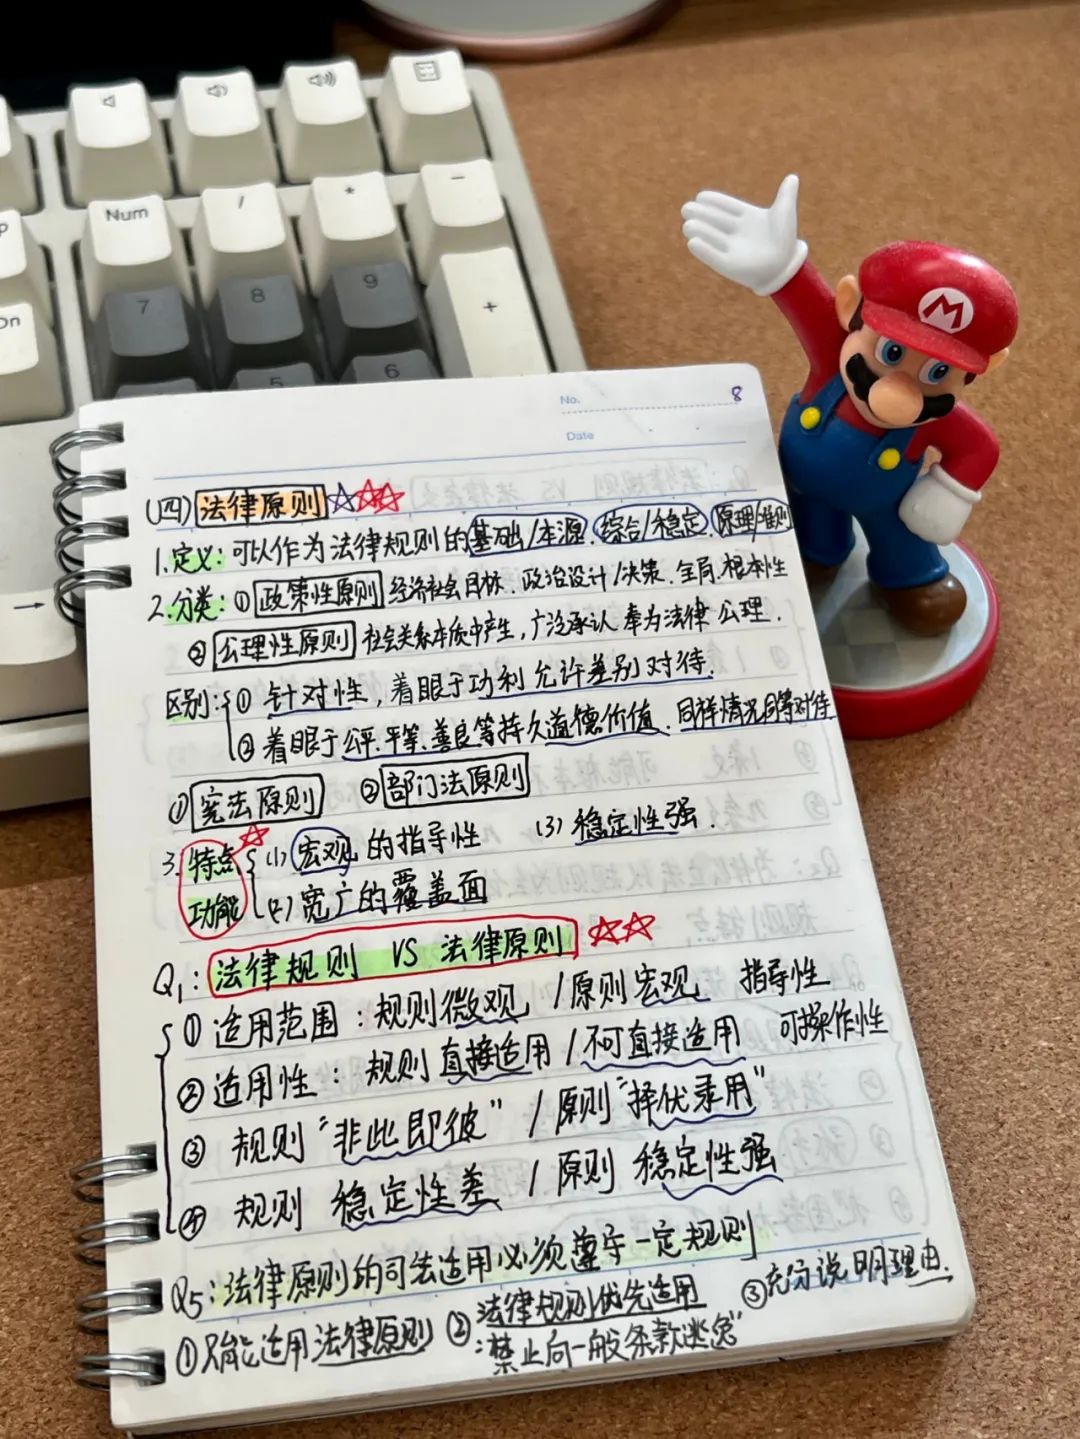 Num
/
*
-
7
8
9
+
5
6
→
M
No. 8
Date
(四) 法律原则
1.定义:可以作为法律规则的基础/本源、综合/稳定、原理/准则
2.分类:① 政策性原则 经济社会目标、政治设计/决策、全局、根本性
② 公理性原则 社会关系本质中产生,广泛承认 奉为法律 公理.
区别:① 针对性,着眼于功利 允许差别对待.
② 着眼于公平、平等、善良等持久道德价值、同样情况同等对待
① 宪法原则 ② 部门法原则
3.特点 (1) 宏观的指导性 (3) 稳定性强.
功能 (2) 宽广的覆盖面
Q1: 法律规则 VS 法律原则
① 适用范围:规则微观 /原则宏观 指导性
② 适用性:规则 直接适用 /不可直接适用 可操作性
③ 规则 "非此即彼" /原则"择优录用"
④ 规则 稳定性差 /原则 稳定性强
Q5:法律原则的司法适用必须遵守一定规则
①只能适用法律原则 ②法律规则优先适用 ③充分说明理由.
:禁止向一般条款逃逸"